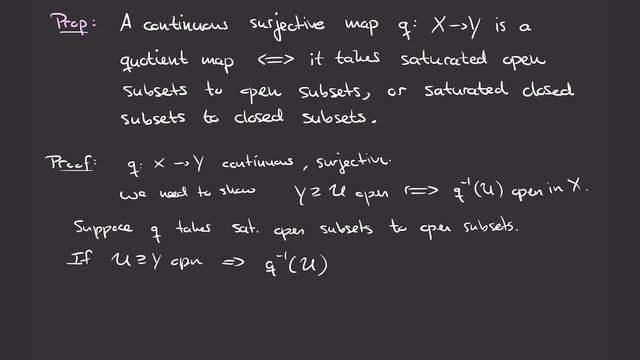 Prop: A continuous surjective map q: X → Y is a
quotient map ⟺ it takes saturated open
subsets to open subsets, or saturated closed
subsets to closed subsets.
Proof: q: X → Y continuous, surjective.
We need to show Y ⊇ U open ⟺ q⁻¹(U) open in X.
Suppose q takes sat. open subsets to open subsets.
If U ⊆ Y open ⇒ q⁻¹(U)